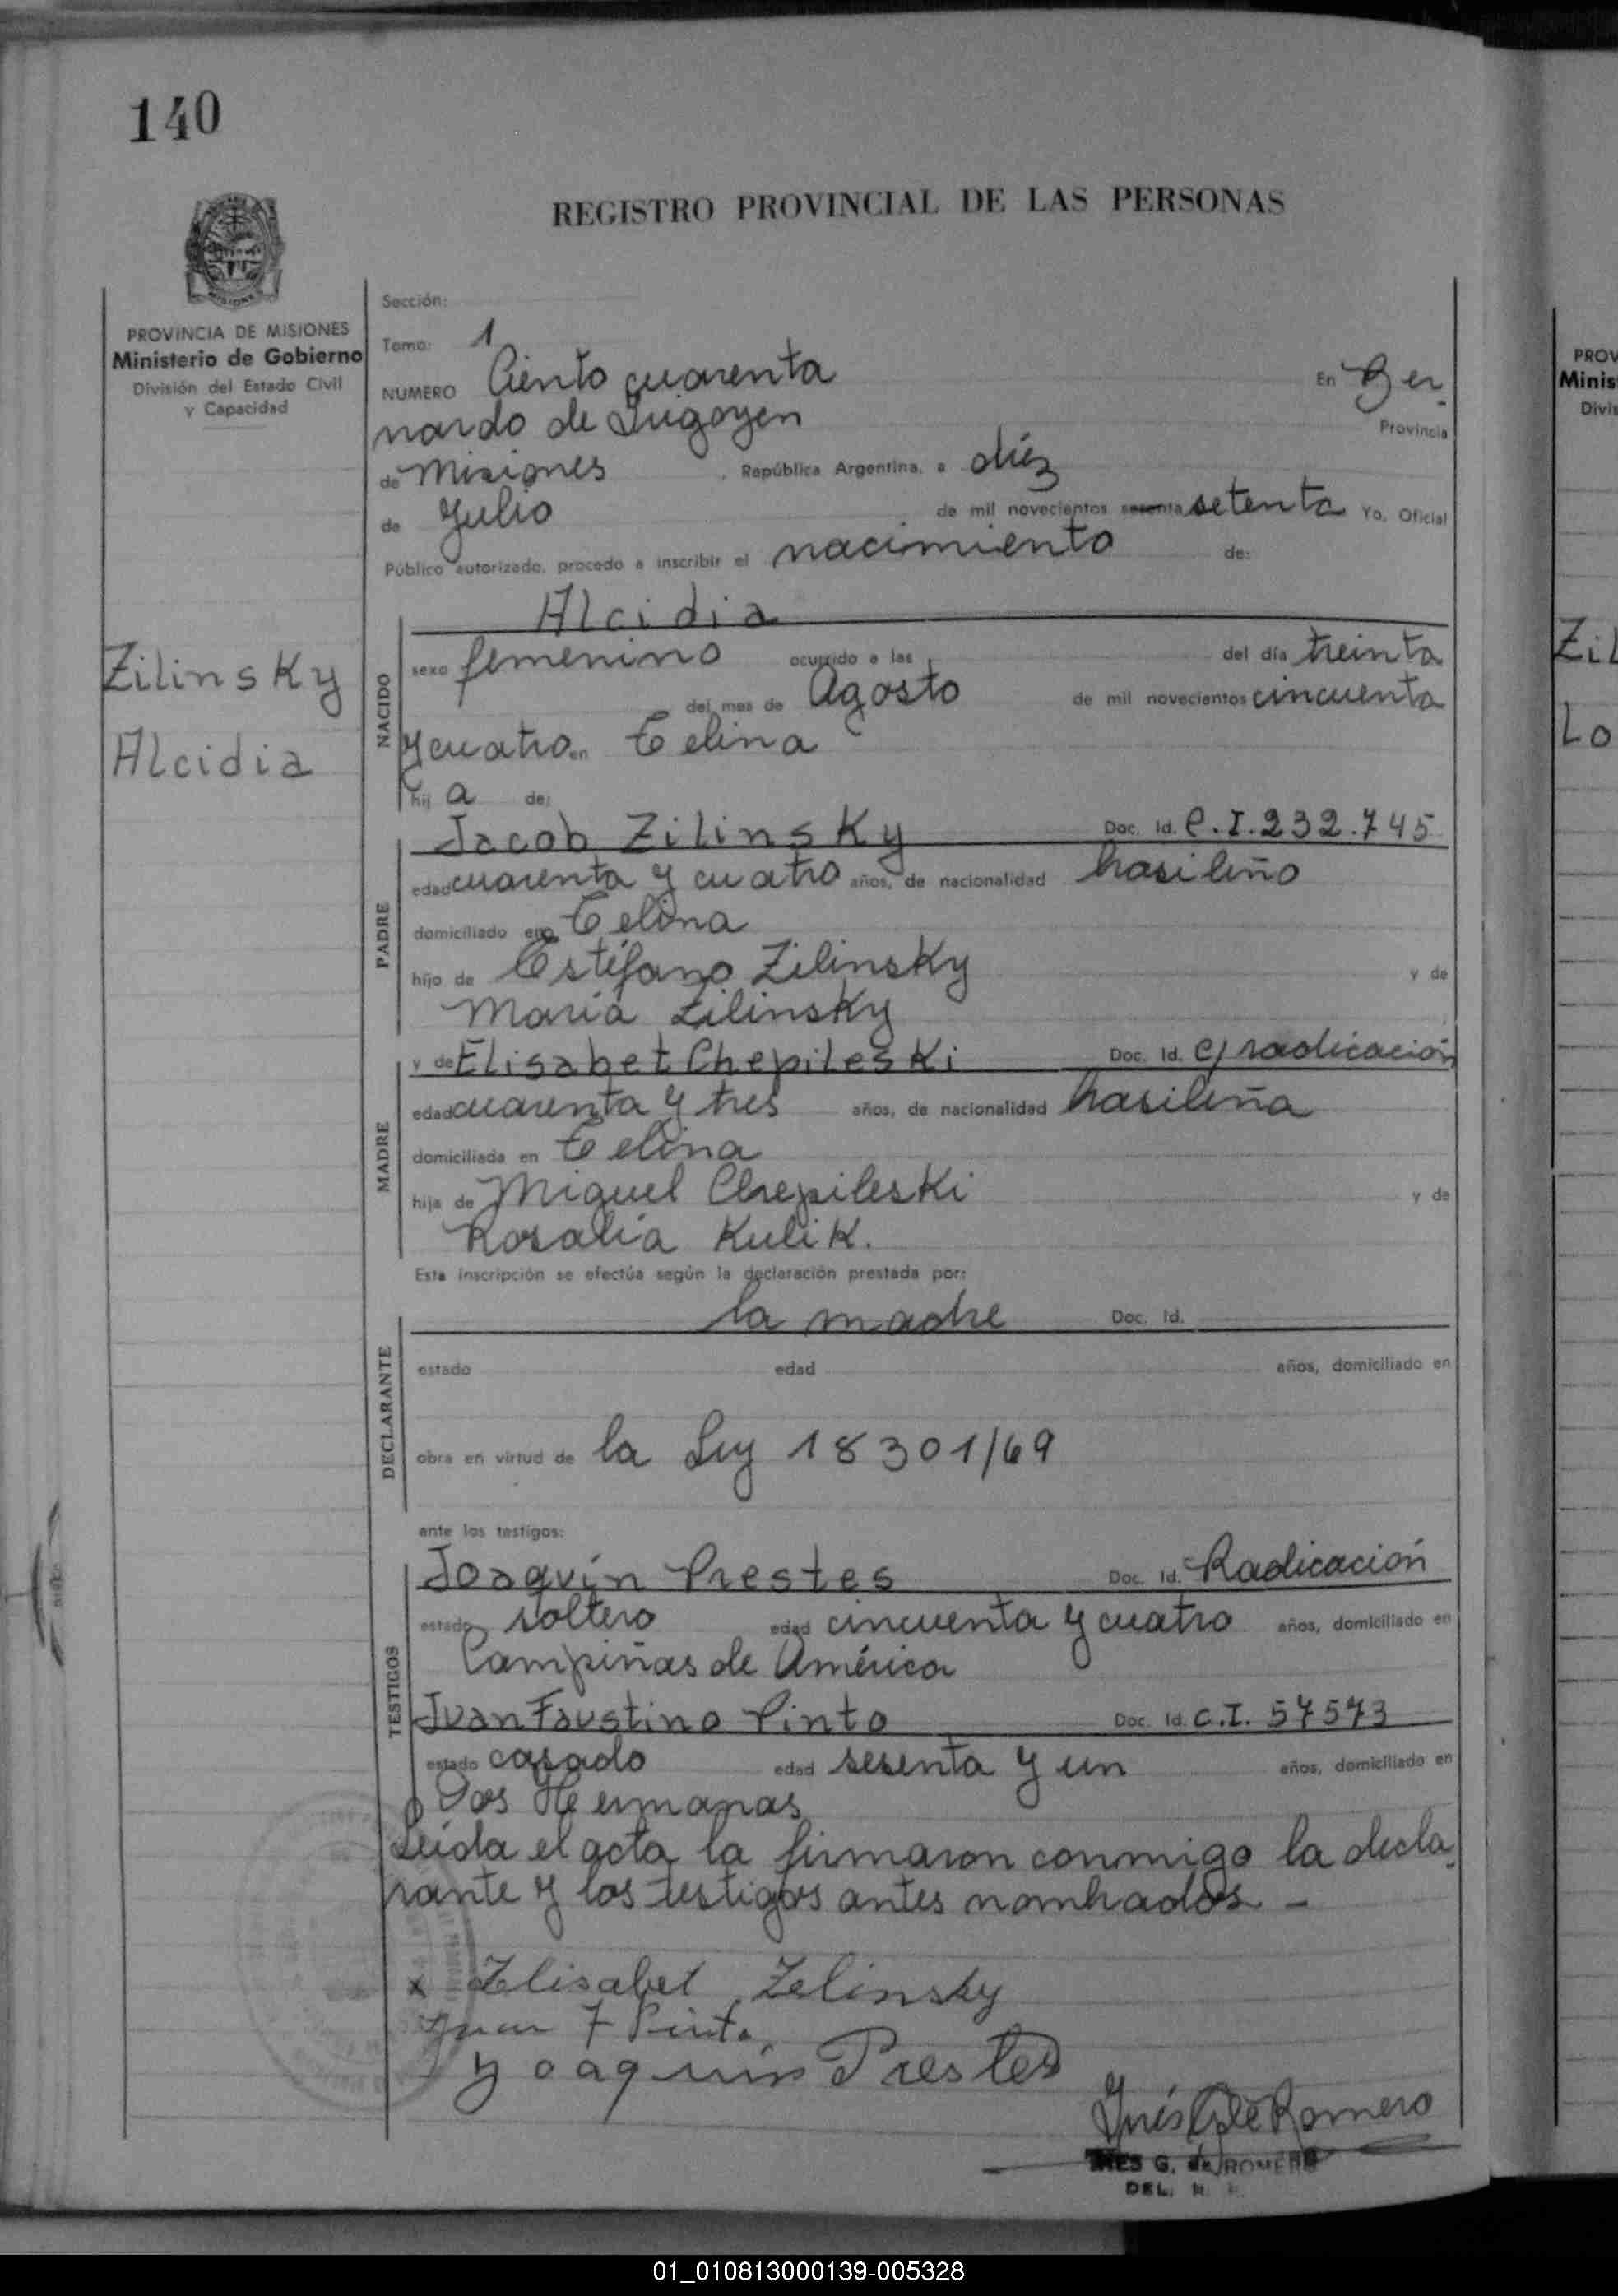 140
REGISTRO PROVINCIAL DE LAS PERSONAS
PROVINCIA DE MISIONES
Ministerio de Gobierno
División del Estado Civil
y Capacidad
Zilinsky
Alcidia
Sección:
Tomo: 1
NUMERO Ciento cuarenta En Ber-
nardo de Irigoyen Provincia
de Misiones, República Argentina, a diéz
de Julio de mil novecientos sesenta setenta Yo, Oficial
Público autorizado, procedo a inscribir el nacimiento de:
NACIDO
Alcidia
sexo femenino ocurrido a las del día treinta
del mes de Agosto de mil novecientos cincuenta
y cuatro en Celina
hij a de:
PADRE
Jacob Zilinsky Doc. Id. C.I. 232.745
edad cuarenta y cuatro años, de nacionalidad brasileño
domiciliado en Celina
hijo de Estéfano Zilinsky y de
María Zilinsky
MADRE
y de Elisabet Chepileski Doc. Id. C/ radicación
edad cuarenta y tres años, de nacionalidad brasileña
domiciliada en Celina
hija de Miguel Chepileski y de
Rosalía Kulik.
Esta inscripción se efectúa según la declaración prestada por:
DECLARANTE
la madre Doc. Id.
estado edad años, domiciliado en
obra en virtud de la Ley 18301/69
ante los testigos:
TESTIGOS
Joaquín Prestes Doc. Id. Radicación
estado soltero edad cincuenta y cuatro años, domiciliado en
Campiñas de América
Juan Faustino Pinto Doc. Id. C.I. 57573
estado casado edad sesenta y un años, domiciliado en
Dos Hermanas
Leída el acta la firmaron conmigo la decla-
rante y los testigos antes nombrados. -
x Elisabet Zelinsky
Juan F Pinto
Yoaquin Prestes
Inés G de Romero
INES G. de ROMERO
DEL. R.
PROV
Minis
Divis
Zil
Lo
01_010813000139-005328